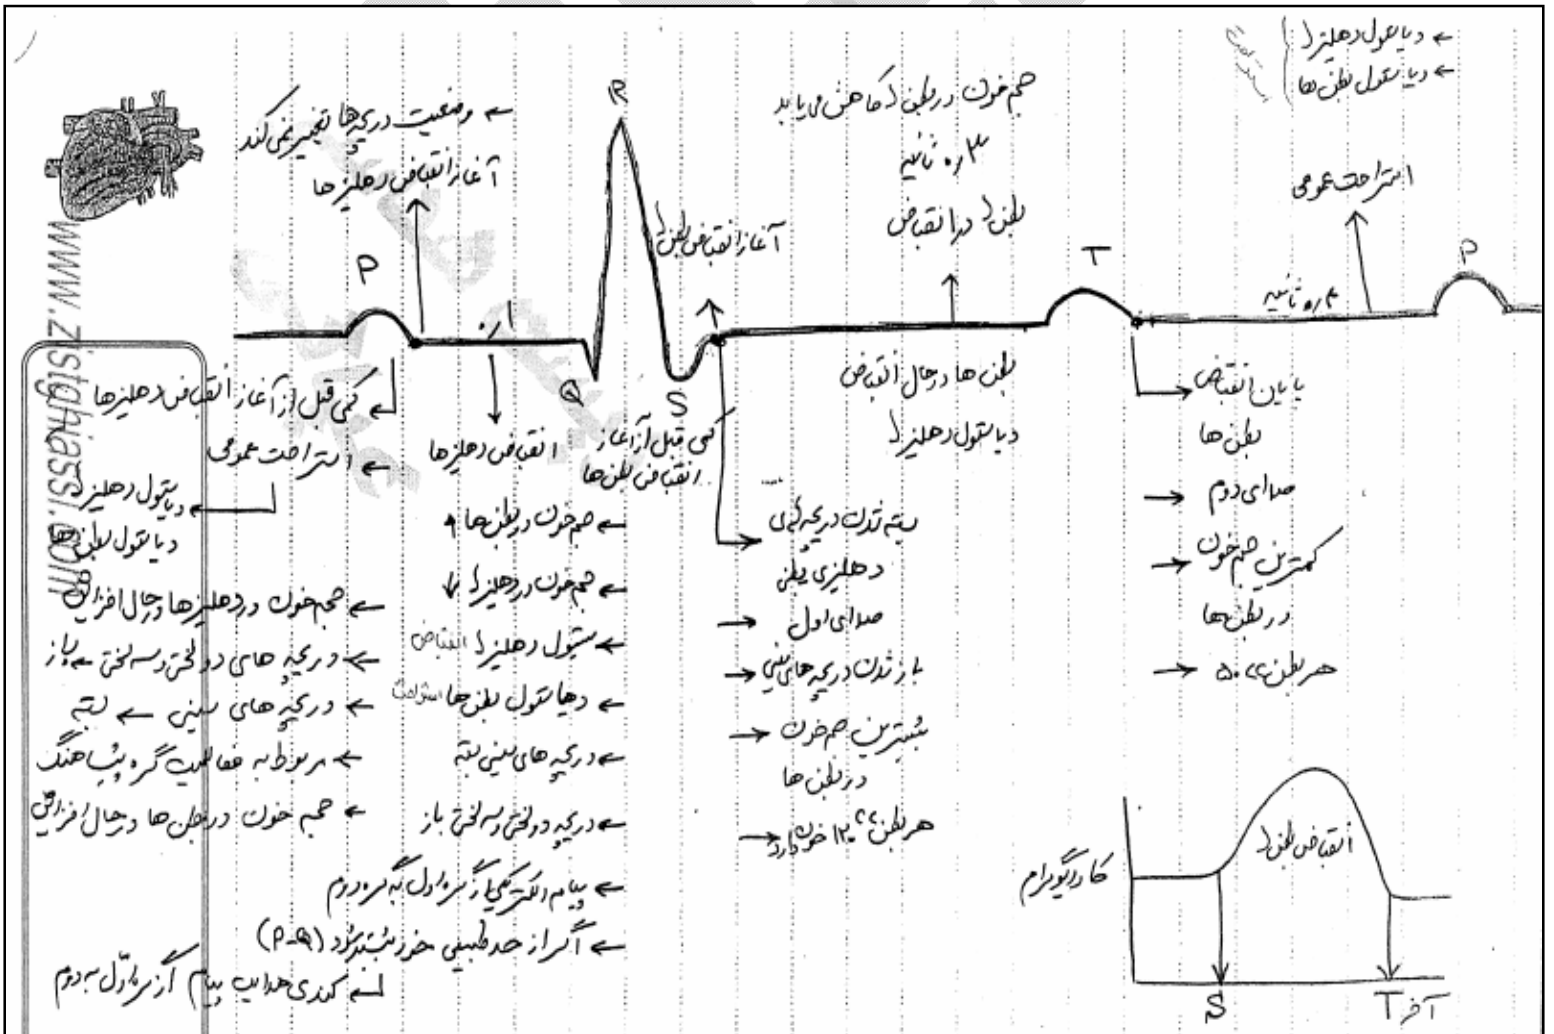 ← دیاستول دهلیزها
← دیاستول بطن ها
استراحت
← وضعیت دریچه ها تغییر نمی کند
آغاز انقباض دهلیزها
P
R
آغاز انقباض بطن ها
حجم خون در بطن ها کاهش می یابد
۰٫۳ ثانیه
بطن ها در انقباض
T
استراحت عمومی
۰٫۴ ثانیه
P
۰٫۱
Q
S
www.zistghiassi.com
کمی قبل از آغاز انقباض دهلیزها
← استراحت عمومی
← دیاستول دهلیزها
دیاستول بطن ها
← حجم خون در دهلیزها در حال افزایش
← دریچه های دولختی و سه لختی ← باز
← دریچه های سینی ← بسته
← مربوط به فعالیت گره پیشاهنگ
← حجم خون در بطن ها در حال افزایش
انقباض دهلیزها
← حجم خون در بطن ها ↑
← حجم خون در دهلیزها ↓
← سیستول دهلیزها انقباض
← دیاستول بطن ها استراحت
← دریچه های سینی بسته
← دریچه دولختی و سه لختی باز
← پیام الکتریکی از گره اول به گره دوم
← اگر از حد طبیعی خود بیشتر شود (P-Q)
کندی هدایت پیام از گره اول به دوم
کمی قبل از آغاز
انقباض بطن ها
بسته شدن دریچه های
دهلیزی بطنی
صدای اول →
باز شدن دریچه های سینی →
بیشترین حجم خون →
در بطن ها
هر بطن ۱۲۰cc خون دارد →
بطن ها در حال انقباض
دیاستول دهلیزها
پایان انقباض
بطن ها
صدای دوم →
کمترین حجم خون →
در بطن ها
هر بطن ۵۰cc →
کاردیوگرام
انقباض بطن ها
S
آخر T